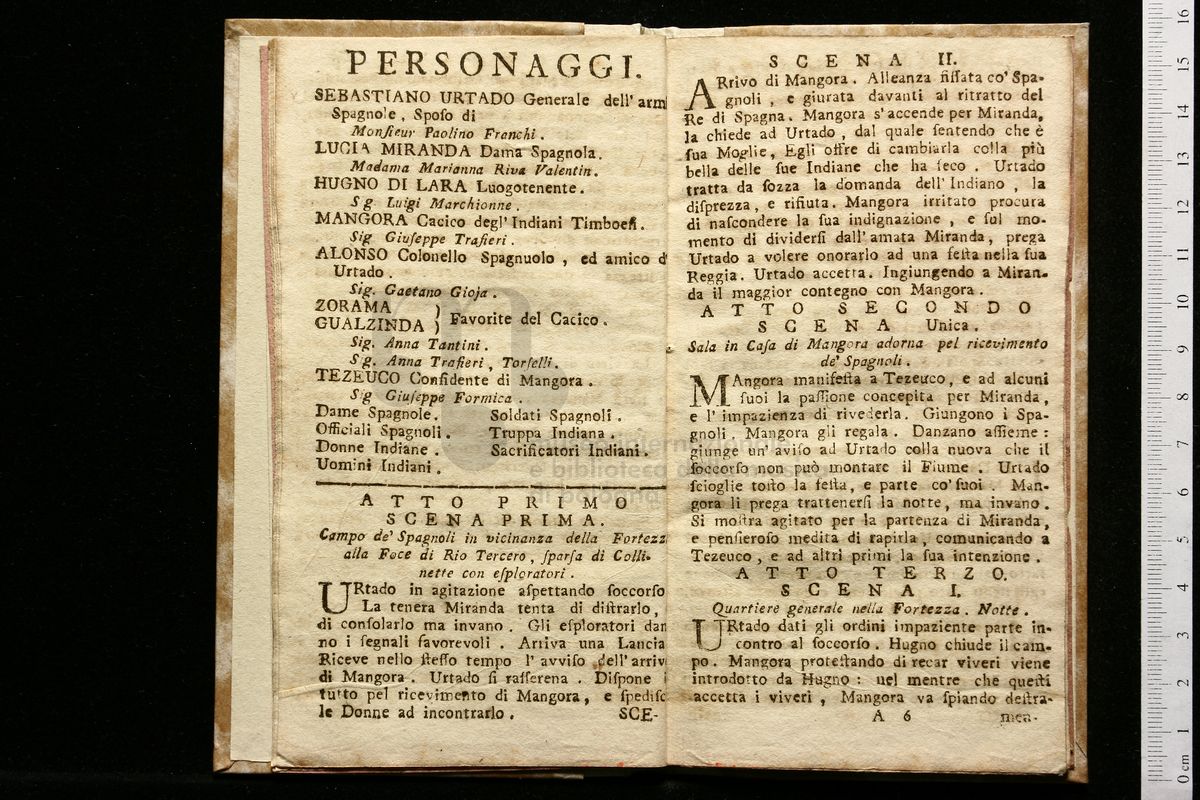 PERSONAGGI.
SEBASTIANO URTADO Generale dell' arm
Spagnole , Sposo di
Monsieur Paolino Franchi .
LUCIA MIRANDA Dama Spagnola.
Madama Marianna Riva Valentin.
HUGNO DI LARA Luogotenente.
S g. Luigi Marchionne .
MANGORA Cacico degl' Indiani Timboesi.
Sig. Giuseppe Trafieri .
ALONSO Colonello Spagnuolo , ed amico d'
Urtado .
Sig. Gaetano Gioja .
ZORAMA
GUALZINDA } Favorite del Cacico .
Sig. Anna Tantini .
S'g. Anna Trafieri , Torselli .
TEZEUCO Confidente di Mangora .
Sig Giuseppe Formica .
Dame Spagnole. Soldati Spagnoli .
Officiali Spagnoli . Truppa Indiana .
Donne Indiane . Sacrificatori Indiani .
Uomini Indiani .
ATTO PRIMO
SCENA PRIMA.
Campo de' Spagnoli in vicinanza della Fortezz
alla Foce di Rio Tercero , sparsa di Colli-
nette con esploratori .
URtado in agitazione aspettando soccorso
La tenera Miranda tenta di distrarlo ,
di consolarlo ma invano . Gli esploratori dan
no i segnali favorevoli . Arriva una Lancia
Riceve nello stesso tempo l' avviso dell' arriv
di Mangora . Urtado si rasserena . Dispone i
tutto pel ricevimento di Mangora , e spedisc
le Donne ad incontrarlo .
SCE-
SCENA II.
ARrivo di Mangora . Alleanza fissata co' Spa-
gnoli , e giurata davanti al ritratto del
Re di Spagna. Mangora s' accende per Miranda,
la chiede ad Urtado , dal quale sentendo che è
sua Moglie, Egli offre di cambiarla colla più
bella delle sue Indiane che ha seco . Urtado
tratta da sozza la domanda dell' Indiano , la
disprezza , e rifiuta. Mangora irritato procura
di nascondere la sua indignazione , e sul mo-
mento di dividersi dall' amata Miranda, prega
Urtado a volere onorarlo ad una festa nella sua
Reggia. Urtado accetta. Ingiungendo a Miran-
da il maggior contegno con Mangora .
ATTO SECONDO
SCENA Unica .
Sala in Casa di Mangora adorna pel ricevimento
de' Spagnoli .
MAngora manifesta a Tezeuco, e ad alcuni
suoi la passione concepita per Miranda,
e l' impazienza di rivederla. Giungono i Spa-
gnoli . Mangora gli regala . Danzano assieme :
giunge un' aviso ad Urtado colla nuova che il
soccorso non può montare il Fiume . Urtado
scioglie tosto la festa, e parte co' suoi . Man-
gora li prega trattenersi la notte, ma invano .
Si mostra agitato per la partenza di Miranda,
e pensieroso medita di rapirla , comunicando a
Tezeuco , e ad altri primi la sua intenzione .
ATTO TERZO.
SCENA I.
Quartiere generale nella Fortezza . Notte .
URtado dati gli ordini impaziente parte in-
contro al soccorso . Hugno chiude il cam-
po . Mangora protestando di recar viveri viene
introdotto da Hugno : nel mentre che questi
accetta i viveri , Mangora va spiando destra-
A 6 men-